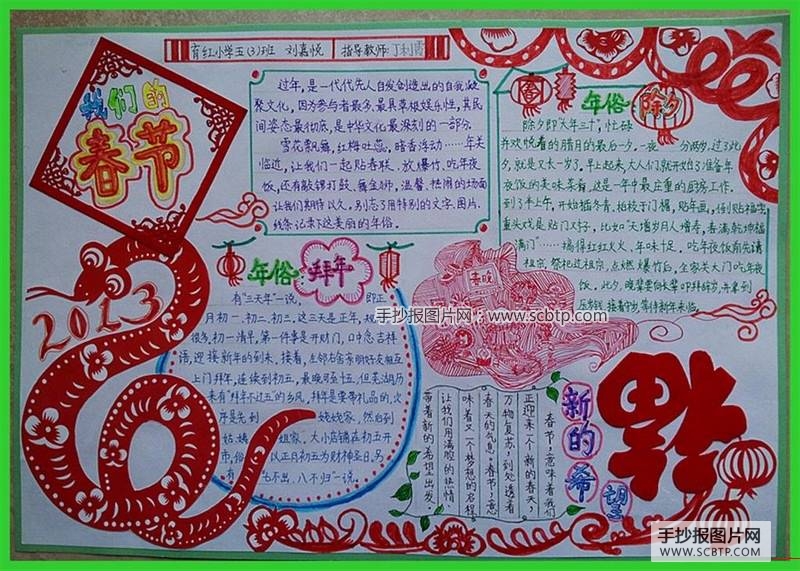 育红小学五(3)班 刘嘉悦 指导教师:丁利霞
我们的
春节
过年,是一代代先人自发创造出的自我凝
聚文化,因为参与者最多、最具草根娱乐性,其民
间姿态最彻底,是中华文化最深刻的一部分。
雪花飘藕,红梅吐蕊,暗香浮动……年关
临近,让我们一起贴春联、放爆竹、吃年夜
饭,还有敲锣打鼓、舞金狮,温馨、祥闹的场面
让我们期待以久。别忘了用特别的文字、图片、
线条记录下这美丽的年俗。
年俗:除夕
除夕即大年三十,忙碌
并欢悦着的腊月的最后一夕。一夜 分两岁,过了此夕
岁,就是又长一岁了。早上起来,大人们就开始了准备年
夜饭的美味菜肴,这是一年中最庄重的厨房工作。
到了上午,开始插冬青、柏枝于门楣,贴年画,倒贴福字
重头戏是贴门对子,比如“天增岁月人增寿,春满乾坤福
满门”……搞得红红火火、年味十足。吃年夜饭前先请
祖宗,祭祀过祖宗,点燃爆竹后,全家关大门吃年夜
饭。此夕,晚辈要向长辈叩拜辞岁,并拿到
压岁钱,接着守岁,等待新年来临。
年俗:拜年
有“三天年”一说, 即正
月初一、初二、初三,这三天是正年,
很多,初一清早,第一件事是开财门,口中念吉祥
语,迎接新年的到来,接着,左邻右舍亲朋好友相互
上门拜年,连续到初五,最晚可至十五。但芜湖历
来有“拜年不过五”的乡风,拜年是要带礼品的,次
序是先到 姥姥家,然后到
姑姨 姐家。大小店铺在初五开
市,俗 以正月初五为财神圣日,另
有“七不出、八不归”一说。
2013
春晚
手抄报图片网:www.scbtp.com
新的希望
春节,意味着我们
正迎来一个新的春天,
万物复苏,到处透着
春天的气息。春节,意
味着又一个梦想的启程
让我们用满腔的热情、
带着新的希望出发。
福
手抄报图片网
WWW.SCBTP.COM